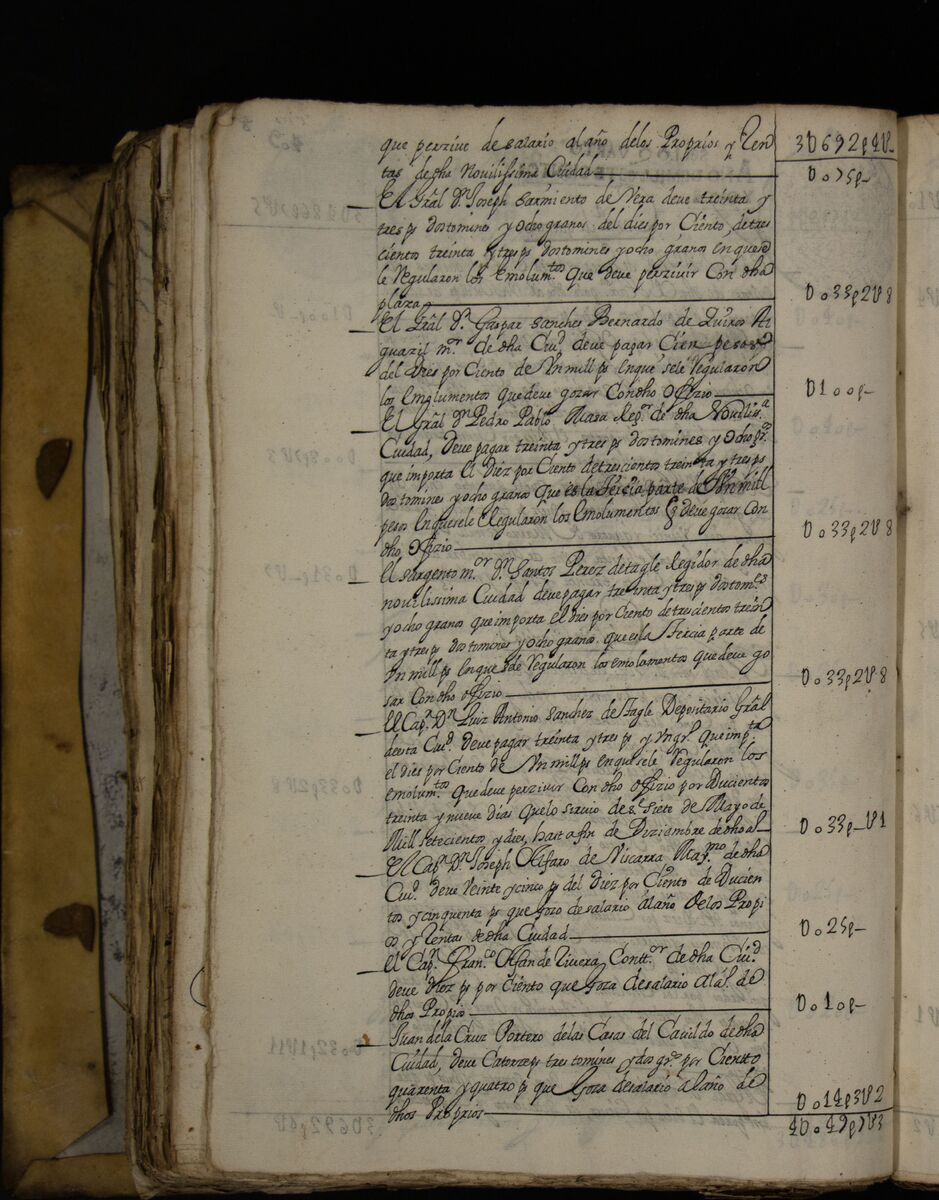 que perzive de salario al año delos Proprios y Ren 3U692p4U_
tas de dha Novilissima Ciudad U o75p_
El Grãl Dn Joseph Sarmiento de Vera deve treinta y
tres ps dos tomines y ocho granos del dies por Ciento, de tres
cientos treinta y tres ps dos tomines y ocho granos en que se
le Regularon los Emolumtos que deve perzivir Con dha
plaza U o33p2U8
El Grãl Dn Gaspar Sanches Bernardo de Quiros Al
guazil mor de dha Ciud deve pagar Cien pesos
del Dies por Ciento de Un mill ps En que sele Regularon
los Emolumentos que deve gozar Con dho Offizio U1oop_
El Grãl Dn Pedro Pablo Masa Regor de dha Novilissa
Ciudad, deve pagar treinta y tres ps dos tomines y ocho gros
que importa el Diez por Ciento de trescientos treinta y tres ps
dos tomines y ocho granos que es la Tercia parte de Un mill
pesos En que sele Regularon los Emolumentos q deve gozar Con
dho Offizio U o33p2U8
El Sargento mor Dn Santos Perez de tagle Regidor de dha
novilissima Ciudad deve pagar treinta y tres ps dos tomes
y ocho granos que importa el dies por Ciento de trescientos trein
ta y tres ps dos tomines y ocho granos que es la Tercia parte de
Un mill ps En que sele Regularon los emolumentos que deve go
sar Con dho offizio U o33p2U8
El Capn Dn Luiz Antonio Sanchez de Tagle Depositario Grãl
desta Ciud deve pagar treinta y tres ps y Un gro que impta
el dies por Ciento de Un mill ps en que sele Regularon los
emolumtos que deve perzivir Con dho offizio por Ducientos
treinta y nueve dias que lo sirvio desde Siete de Mayo de
Mill setecientos y dies, hasta fin de Diziembre de dho aº U o33p_U1
El Capn Dn Joseph Alfaro de Viscarra Maymo de dha
Ciud deve veinte y cinco ps del Diez por Ciento de Ducien
tos y cinquenta ps que goza de salario al año delos Propi
os y Rentas de dha Ciudad U o25p_
El Capn Franco Alfan de Rivera Conttor de dha Ciud
deve Diez ps por Ciento que goza de salario al aº de
dhos Propios U o1op_
Juan dela Cruz Portero delas Casas del Cavildo de dha
Ciudad, deve Catorze ps tres tomines y dos gros por Ciento
quarenta y quatro ps que goza de salario al año de
dhos Proprios U o14p3U2
4U o49p7U3